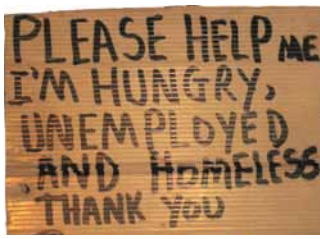 PLEASE HELP ME
I'M HUNGRY,
UNEMPLOYED
AND HOMELESS
THANK YOU